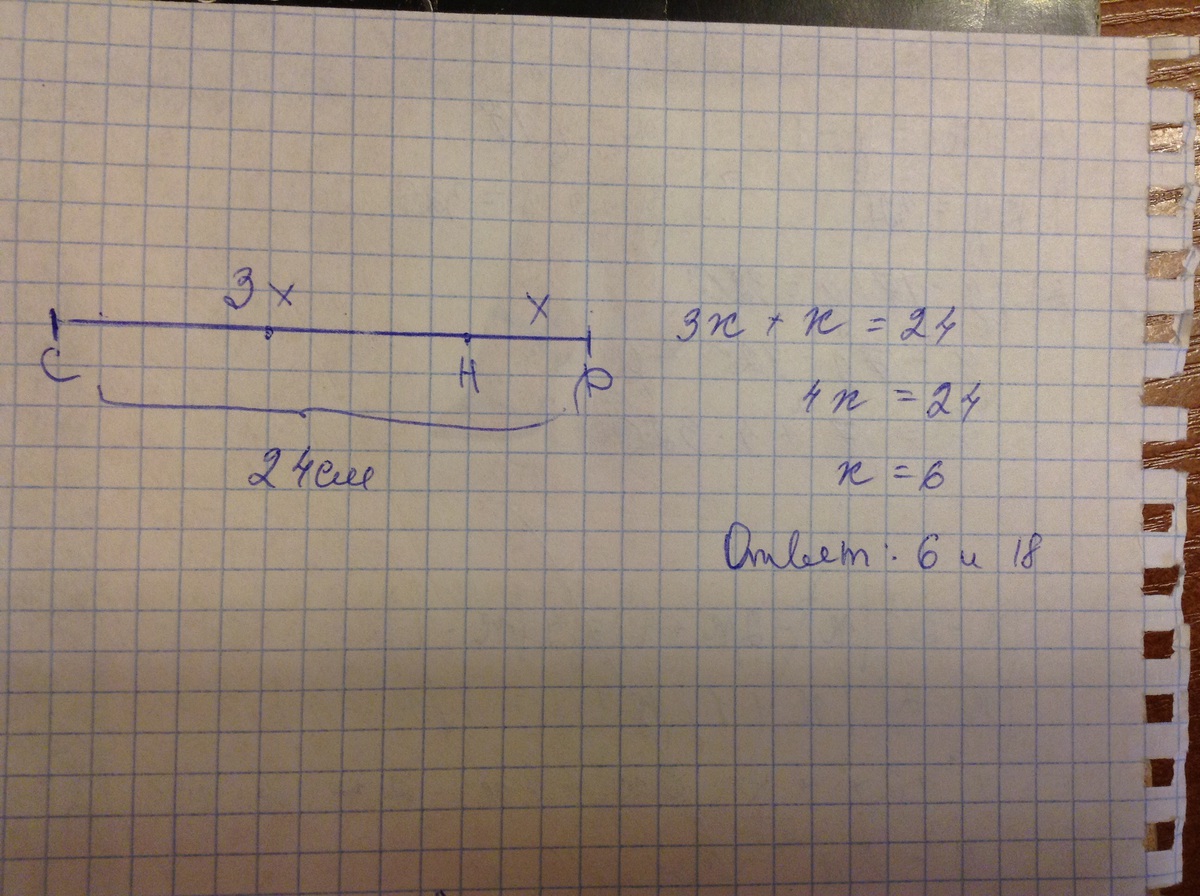 3x x
C H P
24см
3x + x = 24
4x = 24
x = 6
Ответ: 6 и 18